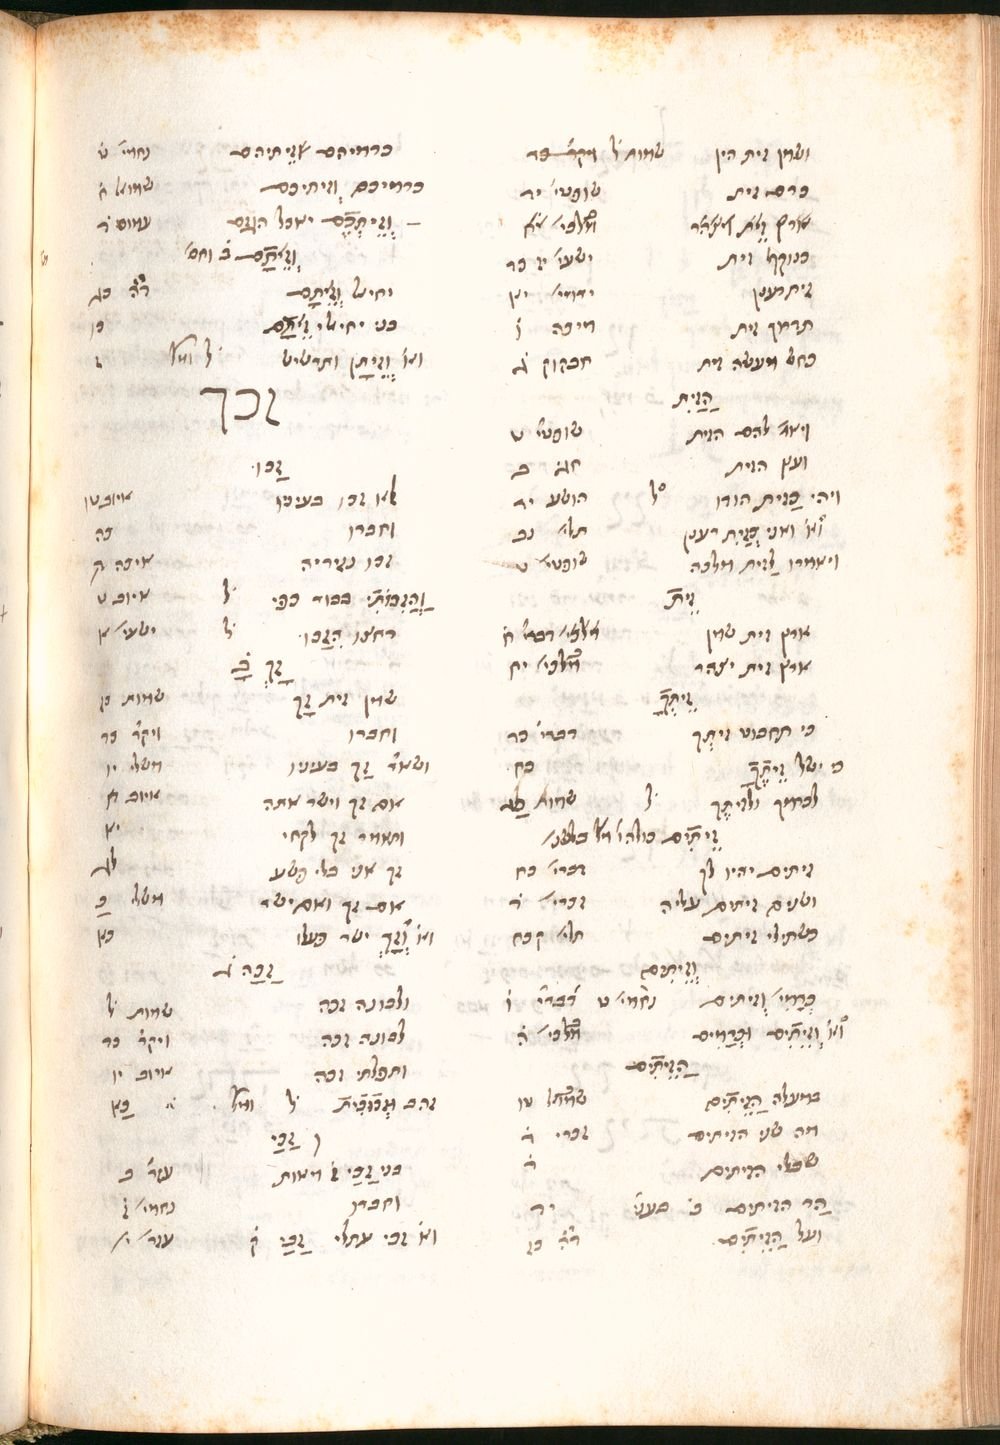 ושמן זית הין שמות ל ויקר׳ כד
כרם זית שופטי׳ יד
ארץ זית יצהר מלכי׳ יח
כנוקף זית ישעי׳ יז כד
זית רענן ירמי׳ יא
תדרך זית מיכה ו
כחש מעשה זית חבקוק ג
הַזַיִת
ויאמר להם הזית שופטי׳ ט
ועץ הזית חגי ב
ויהי כַזית הודו ל הושע יד
וא׳ ואני כְזַיִת רענן תלי׳ נב
ויאמרו לַזית מלכה שופטי׳ ט
זֵית
ארץ זית שמן דברי׳ ח
ארץ זית יצהר מלכי׳ יח
זֵיתֶךָ
כי תחבוט זיתך דברי׳ כד
כי ישל זֵיתֶךָ כח
לכרמך לזיתך ל שמות כג
זֵיתִים
זיתים יהיו לך דברי׳ כח
ושנים זיתים עליה זכרי׳ ד
כשתילי זיתים תלי׳ קכח
וְזֵיתִים
כְרַמִי׳ וְזיתים נחמי׳ ט דברי׳ ו
וא׳ וְזֵיתִים וּכְרָמִים מלכי׳ ה
הַזֵיתִים
במעלה הַזֵיתִים שמואל טו
מה שני הזיתים זכרי׳ ד
שבלי הזיתים ד
הַר הזיתים ב׳ בענ׳ יד
ועל הַזֵיתִים דה׳ כז
כרמיהם זֵיתיהם נחמי׳ ה
כרמיכם וְזיתיכם שמואל ח
וְזֵיתֵכֶם יאכל הגזם עמוס ד
וְזֵיתָם ב׳ וחס׳
יחיאל וְזֵיתָם דה׳ כג
בני יחיאלי זֵיתָם כו
וא׳ וְזֵיתָן ותרשיש ל ומל׳ ז
זכך
זַכו
לא זכו בעיניו איוב טו
וחברו כה
זכו נזיריה איכה ד
וַהֲזִכּוֹתִי בבור כפי ל איוב ט
רחצו הִזַכו ל ישעי׳ א
זָךְ ב׳
שמן זית זָךְ שמות כז
וחברו ויקר׳ כד
זַךְ בעיניו משלי יו
אם זך וישר אתה איוב ח
ותאמר זך לקחי יא
זך אני בלי פשע לג
אם זך ואם ישר משלי כ
וא׳ וְזַךְ ישר פעלו כא
זַכָה ג
ולבונה זכה שמות ל
לבונה זכה ויקר׳ כד
ותפלתי זכה איוב יו
זהב וּזְכוֹכִית ל ומל׳ . כא
זַכָי
בני זַכָי ז׳ מאות עזר׳ ב
וחברו נחמי׳ ז
וא׳ זבי עתלי זַבַי ק׳ עזר׳ י׳